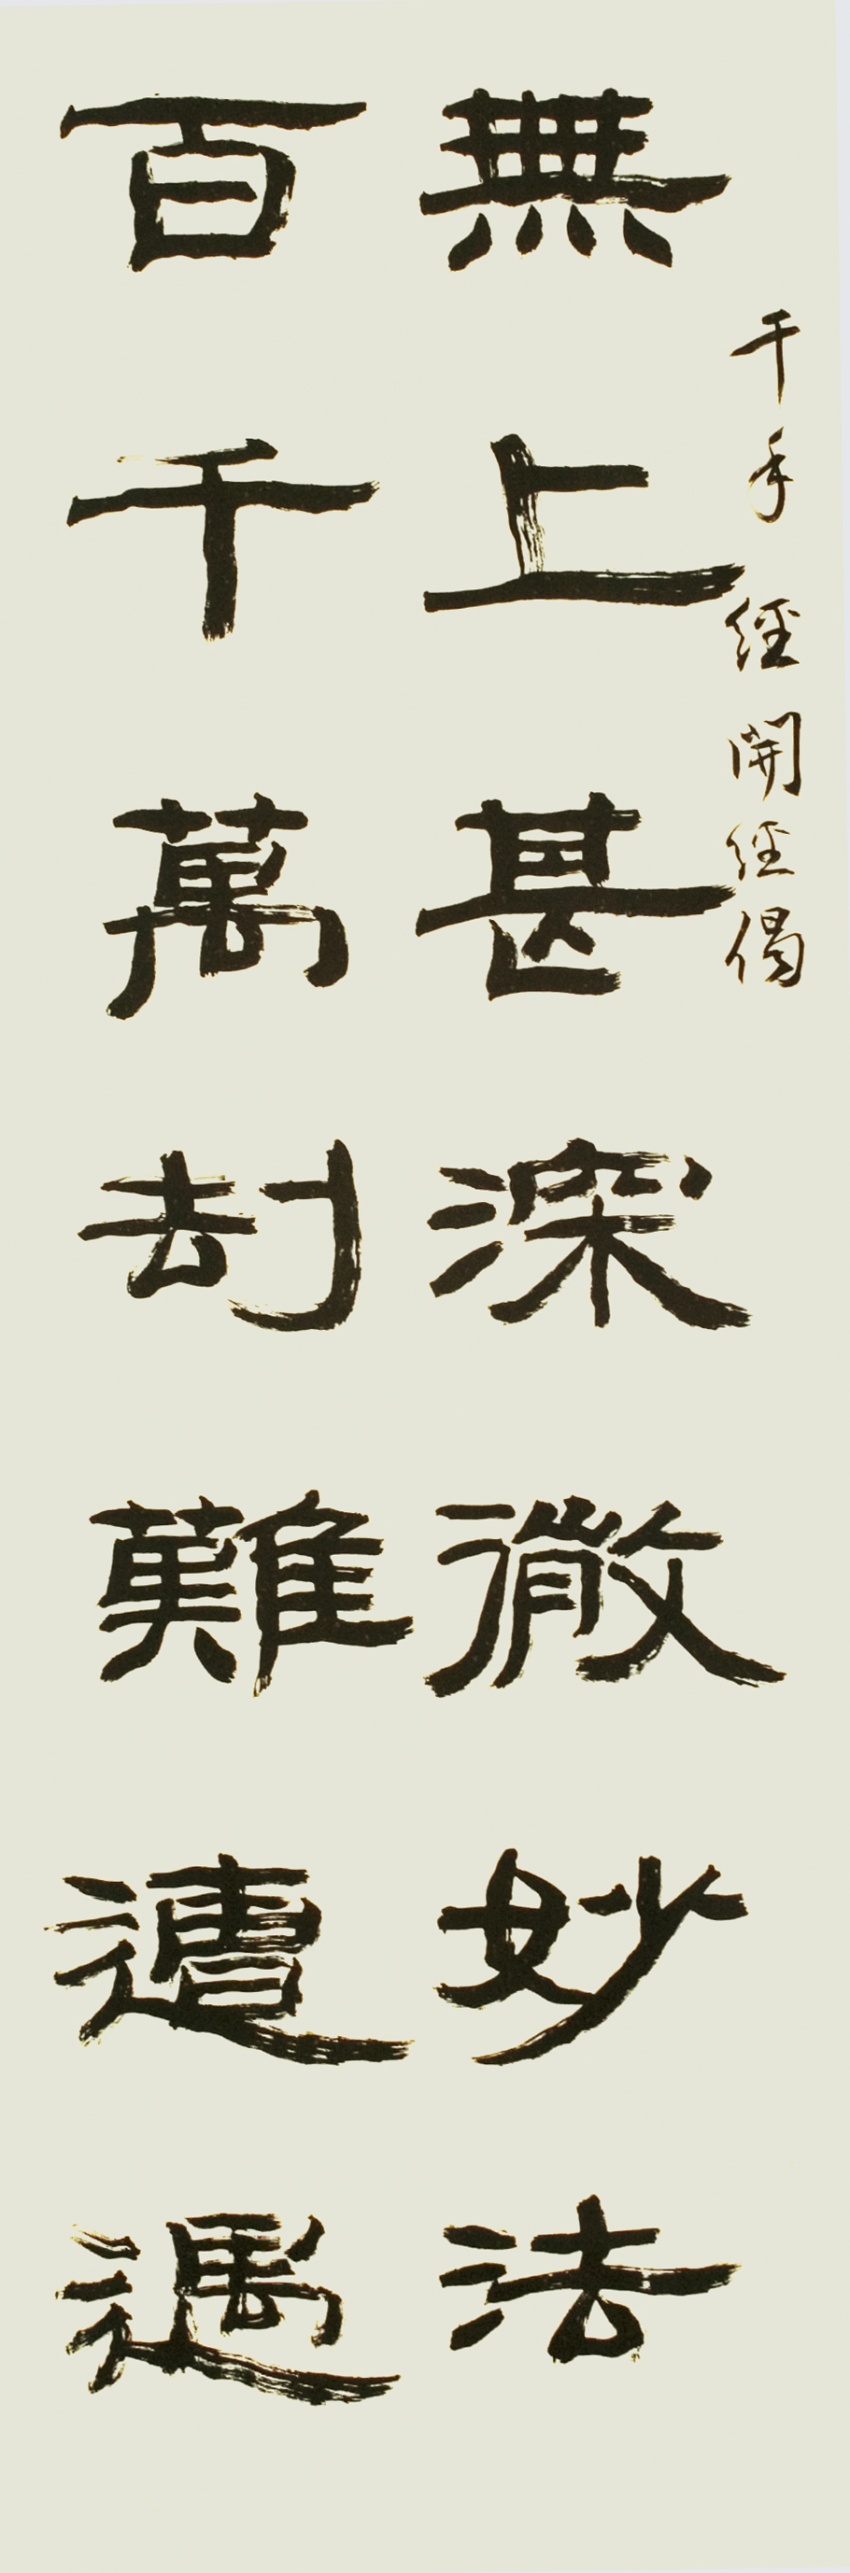 千手經開經偈
無上甚深微妙法
百千萬劫難遭遇